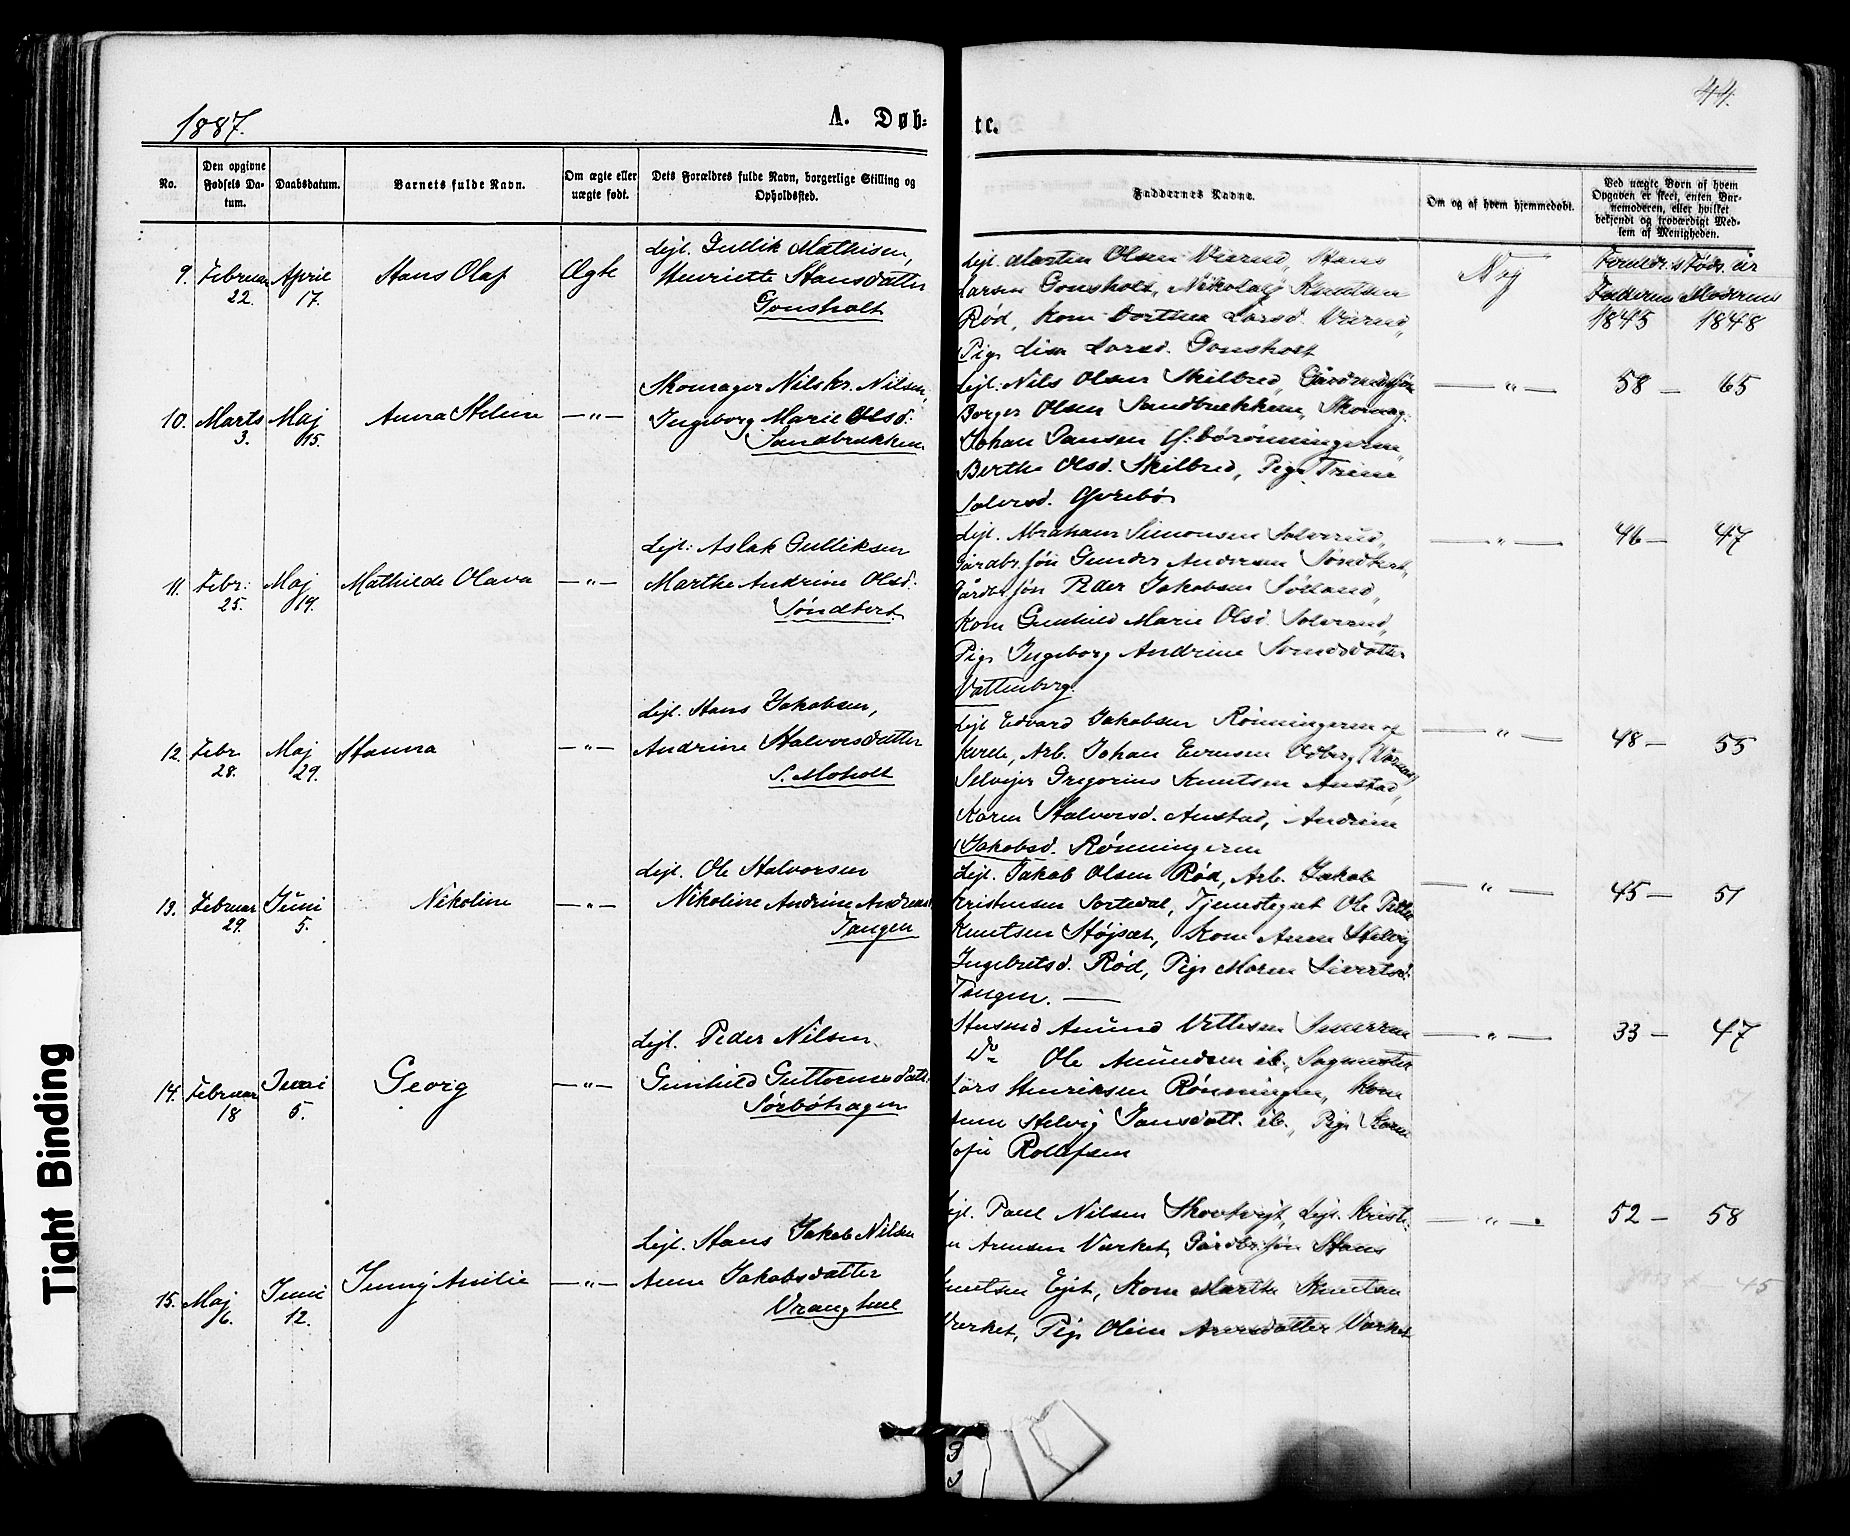 44.
1887.
A. Døb-
te.
No.
Den opgivne Fødsels Da-tum.
Daabsdatum.
Barnets fulde Navn.
Om ægte eller uægte født.
Dets Forældres fulde Navn, borgerlige Stilling og Opholdssted.
Faddernes Navne.
Om og af hvem hjemmedøbt.
Ved uægte Børn af hvem Opgaven er skeet, enten Bar-nemoderen, eller hvilket bekjendt og troværdigt Med-lem af Menigheden.
9. Februar 22. April 17. Hans Olaf Ægte
Lejl. Gullik Mathisen,
Henriette Hansdatter
Gonsholt
Lejl. Martin Olsen Vierud, Hans
Larsen Gonsholt, Nikolaj Knutsen
Rød, Kone Dorthea Larsd. Vierud,
Pige Lise Larsd. Gonsholt
Nej
Foreldr.s Føds. år
Faderens Moderens
1845 1848
10. Marts 3. Maj 15. Anna Helene —"—
Skomager Nils Kr. Nilsen,
Ingeborg Marie Olsd.
Sandbrækken
Lejl. Nils Olsen Skilbred,
Borger Olsen Sandbrækken, Skomag.
Johan Jansen
Berthe Olsd. Skilbred, Pige Trine
Solvesd.
—"— 58 — 65
11. Febr. 25. Maj 19. Mathilde Olava —"—
Lejl. Aslak Gulliksen
Marthe Andrine Olsd.
Søndbert
Lejl. Abraham Simonsen Solverud,
Gårdbr.søn Gunder Andersen Søndbert,
søn Peder Jakobsen
Kone Gunhild Marie Olsd. Solverud,
Pige Ingeborg Andrine
Vattenberg.
—"— 46 — 47
12. Febr. 28. Maj 29. Hanna —"—
Lejl. Hans Jakobsen,
Andrine Halvorsdatter
S. Moholt
Lejl. Edvard Jakobsen Rønningerne
Arb. Johan Evensen Odberg
Selvejer Gregorius Knutsen Anstad,
Karen Halvorsd. Anstad, Andrine
Jakobsd. Rønningerne
—"— 48 — 55
13. Februar 29. Juni 5. Nikoline —"—
Lejl. Ole Halvorsen
Nikoline Andrine
Tangen
Lejl. Jakob Olsen Rød, Arb. Jakob
Kristensen Sortedal, Tjenestegut Ole Petter
Knutsen Højsæt, Kone Anne Helvig
Ingebretsd. Rød, Pige Maren Sivertsd.
Tangen. —
—"— 45 — 51
14. Februar 18 Juni 5. Georg —"—
Lejl. Peder Nilsen.
Gunhild
Sørbøhagen
Husmd Amund
Do Ole Amundsen ib.,
Lars Henriksen Rønningen, Kone
Anne Helvig Jansdatt. ib., Pige Karen
Sofie Rollefsen
—"— 33 — 47
15. Maj 6. Juni 12. Jenny Amilie —"—
Lejl. Hans Jakob Nilsen
Anne Jakobsdatter
Vranghue
Lejl. Paul Nilsen Skovtvejt, Lejl. Kristi-
an Arensen Værket, Gårdbr.søn Hans
Knutsen Ejet, Kone Marthe Knutsen
Værket, Pige Oline Arensdatter Værket
—"— 52 — 58
Tight Binding